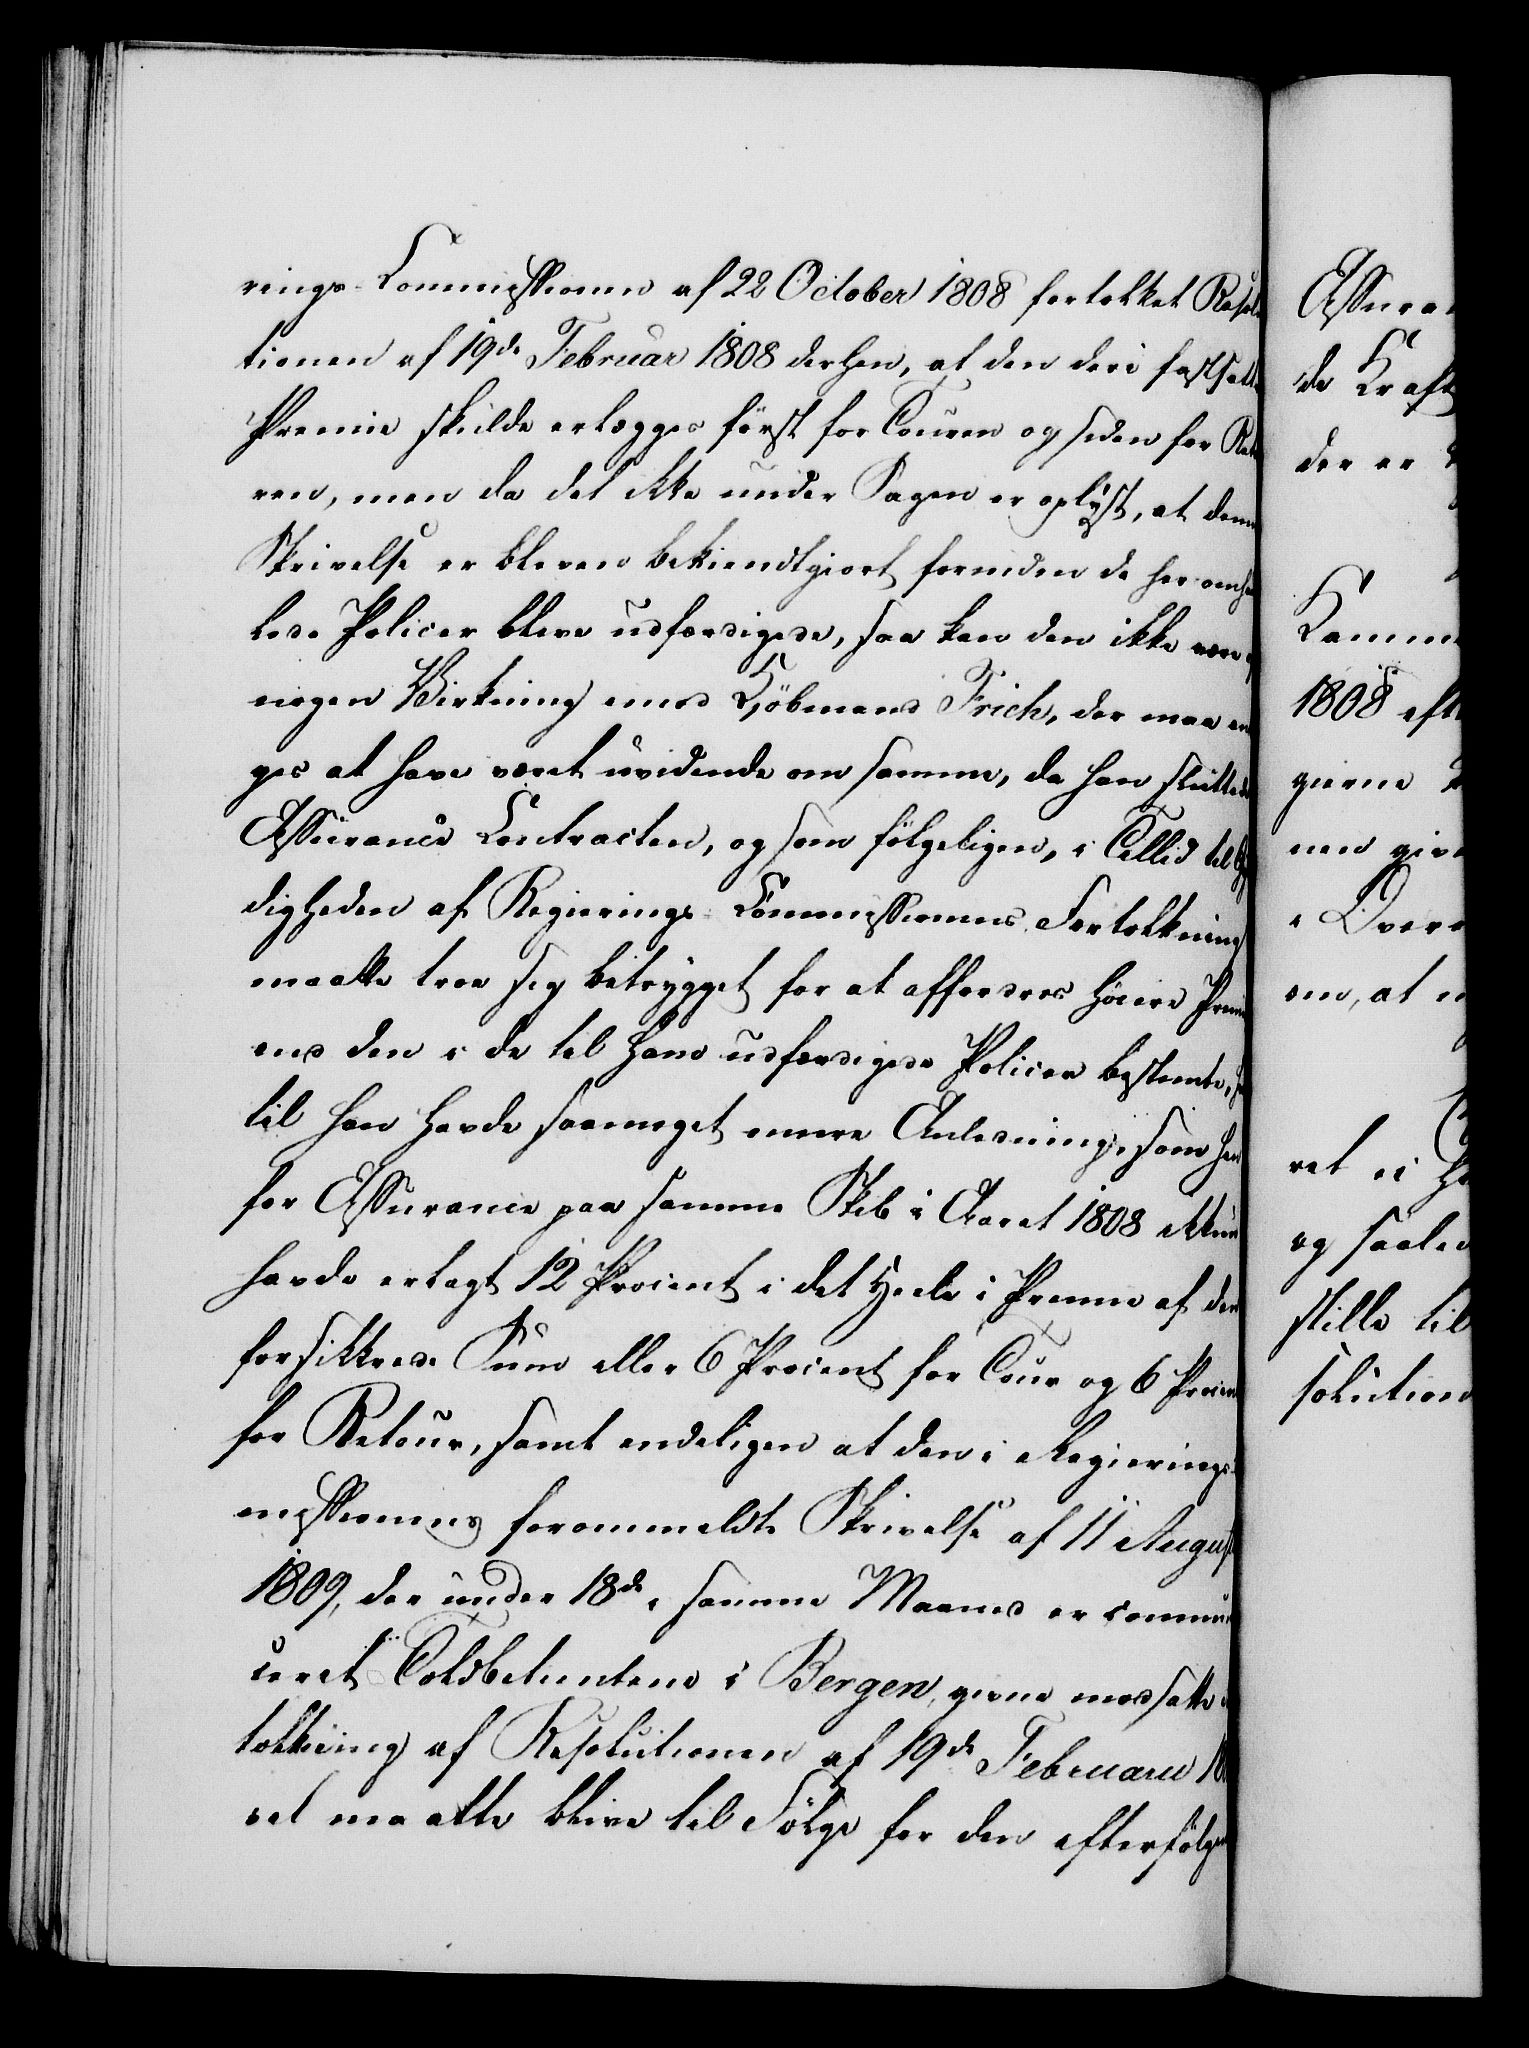 rings-Commissionen af 22 October 1808 fortolket Resolu
tionen af 19de Februar 1808 derhen, at den deri fastsatte
Præmie skulde erlægges först for Couren og siden for Retu
ren, men da det ikke under Sagen er oplÿst, at denne
Skrivelse er bleven bekiendtgiort forinden de her omhand
lede Policer bleve udfærdigede, saa kan den ikke være af
nogen Virkning imod Kjöbmand Frich, der maa an
ges at have været uvidende om samme, da han sluttede
Assurance Contracten, og som fölgeligen, i Tillid til
digheden af Regierings-Commissionens Fortolkning
maatte troe sig betrygget for at affordres höiere Præmie
end den i de til ham udfærdigede Policer bestemte, hvor
til han havde saameget mere Anledning, som han
for Assurance paa samme Skib i Aaret 1808 ikkun
havde erlagt 12 Procent i det Heele i Præmie af den
forsikkrede Sum eller 6 Procent for Cour og 6 Procent
for Retour, samt endeligen at den i Regierings-
missionens forommeldte Skrivelse af 11 August
1809, der under 18de i samme Maaned er communi
ceret Toldbetientene i Bergen, givne modsatte
tolkning af Resolutionen af 19de Februarii 18
vel maatte blive til Fölge for den efterfölgen
Assuran
de Kraft
der er
Komme
1808 eft
givne
men give
i Over
om, at
ret ei H
og saale
stille til
solution